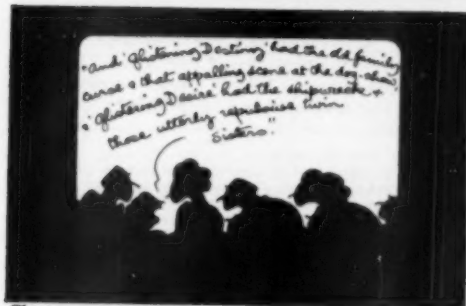 "And 'Glistening Destiny' had the old family
curse & that appalling scene at the dog-show,
& 'Glistening Desire' had the shipwreck &
those utterly repulsive twin
sisters."